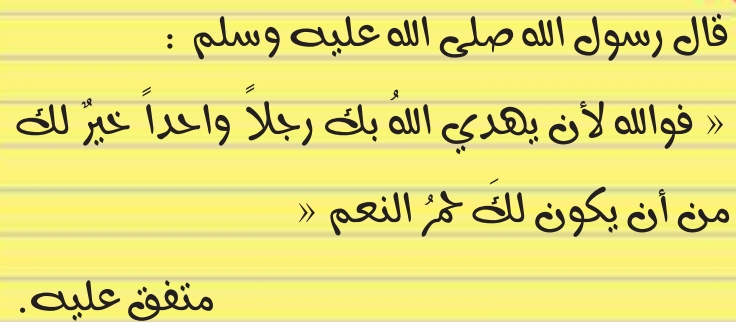 قال رسول الله صلى الله عليه وسلم :
« فوالله لأن يهدي اللهُ بك رجلاً واحداً خيرٌ لك
من أن يكون لكَ حمرُ النعم »
متفق عليه.